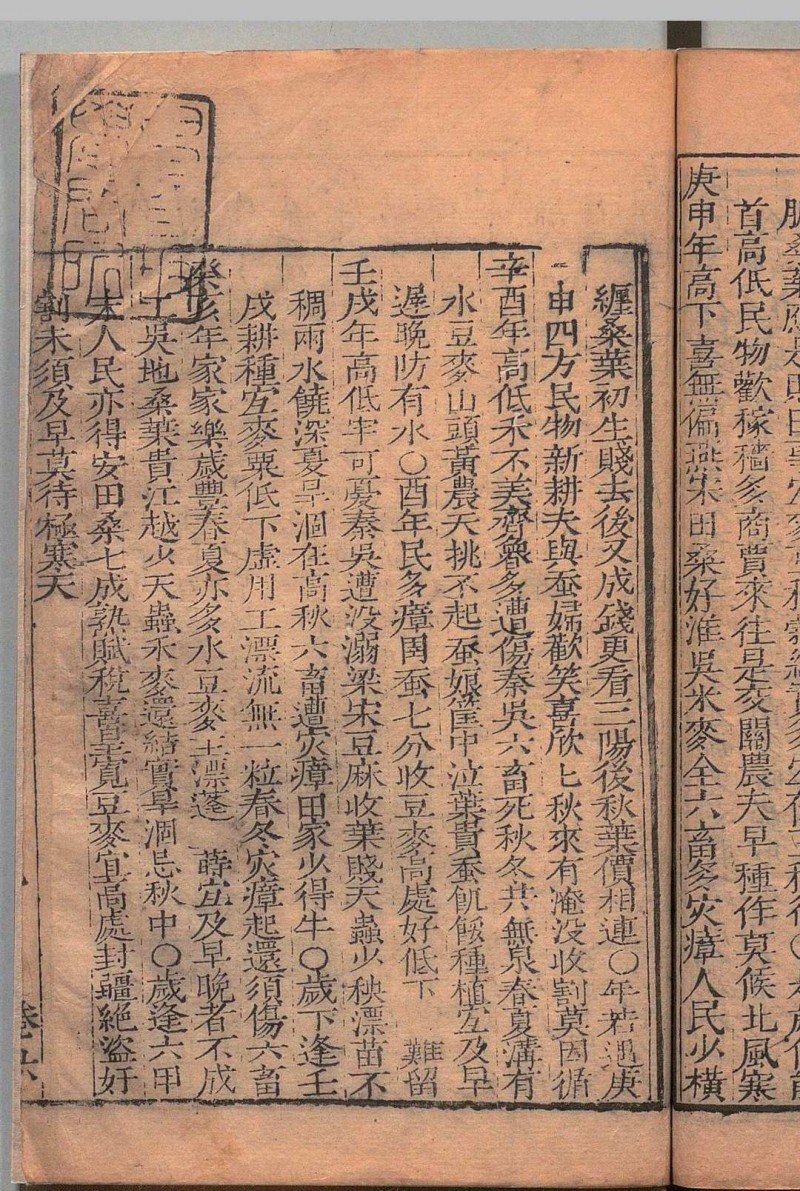 首高低民物歡稼穡多商賈來往是交關農夫早種作莫候北風寒
庚申年高下喜無偏燕宋田桑好淮吳米麥全六畜多灾瘴人民少橫
纏桑葉初生賤去後又成錢更看三陽後秋葉價相連〇年若遇庚
申四方民物新耕夫與蚕婦歡笑喜欣七秋來有淹没收割莫因循
辛酉年高低禾不美齊魯多遭傷秦吳六畜死秋冬共無泉春夏溝有
水豆麥山頭黃農夫挑不起蚕娘筐中泣葉貴蚕飢餒種植宜及早
遲晚防有水〇酉年民多瘴田蚕七分收豆麥高處好低下難留
壬戌年高低牢可憂秦吳遭没溺梁宋豆麻收葉賤天蟲少秧漂苗不
稠雨水饒深夏旱涸在高秋六畜遭灾瘴田家少得牛〇歲下逢壬
戌耕種宜麥粟低下虛用工漂流無一粒春冬灾瘴起還須傷六畜
癸亥年家家樂歲豐春夏亦多水豆麥主漂蓬蒔宜及早晚者不成
工吳地桑葉貴江越少天蟲禾麥還結實旱涸忌秋中〇歲逢六甲
末人民亦得安田桑七成熟賦稅喜皇寬豆麥宜高處封疆絕盜奸
割禾須及早莫待極寒天